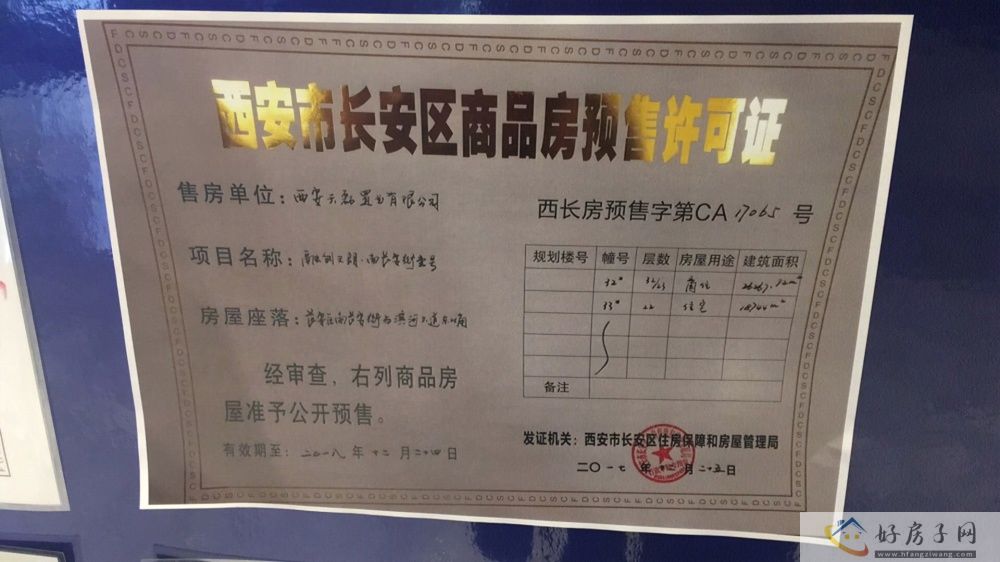 西安市长安区商品房预售许可证
售房单位：西安天朗置业有限公司
西长房预售字第CA 17065 号
项目名称：融创天朗·南长安街壹号
房屋座落：长安区南长安街与滨河大道东南角
经审查，右列商品房
屋准予公开预售。
有效期至：二〇一八年十二月二十四日
规划楼号 幢号 层数 房屋用途 建筑面积
32# 32/23 商住
33# 22 住宅
备注
发证机关：西安市长安区住房保障和房屋管理局
二〇一七年十二月二十五日
好房子网
www.hfangziwang.com